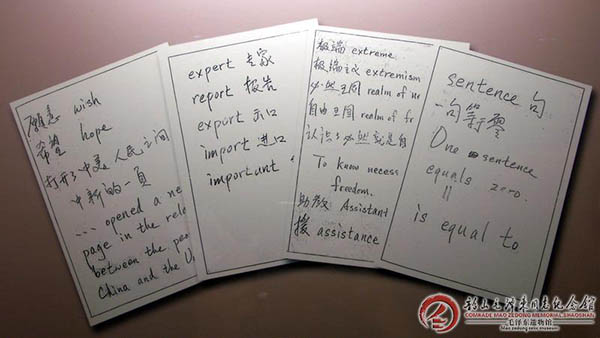 愿意 wish
希望 hope
打开了中美人民之间
中新的一頁
... opened a ne
page in the rela
between the peo
China and the U
expert 专家
report 报告
export 出口
import 进口
important
极端 extreme
极端主义 extremism
必然王国 realm of ne
自由王国 realm of fr
认识了必然就是自
To know necess
freedom.
助教 Assistant
援 assistance
sentence 句
一句等于零
One sentence
equals zero.
is equal to
韶山毛泽东同志纪念馆
COMRADE MAO ZEDONG MEMORIAL SHAOSHAN
毛泽东遗物馆